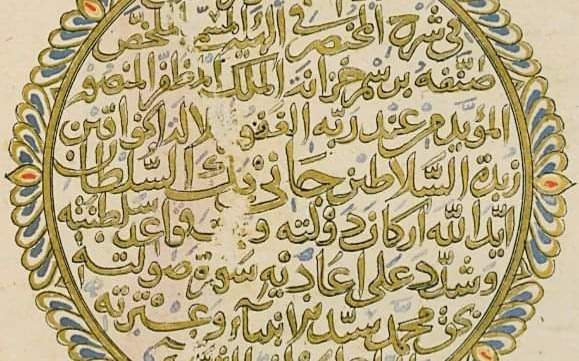 في شرح المختصر في الهيئة الملخص
صنفه برسم خزانة الملك المظفر المنصور
المؤيد من عند ربه الغفور ملاذ الخواقين
زبدة السلاطين جاني بك السلطان
ايد الله اركان دولته وقواعد سلطنته
وشدد على اعاديه سورة صولته
بحق محمد سيد الانبياء وعترته